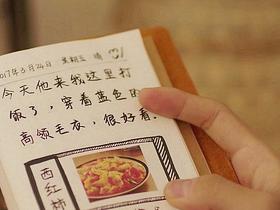 2017年3月24日 星期五 晴
今天他来我这里打
饭了，穿着蓝色的
高领毛衣，很好看。
西红柿